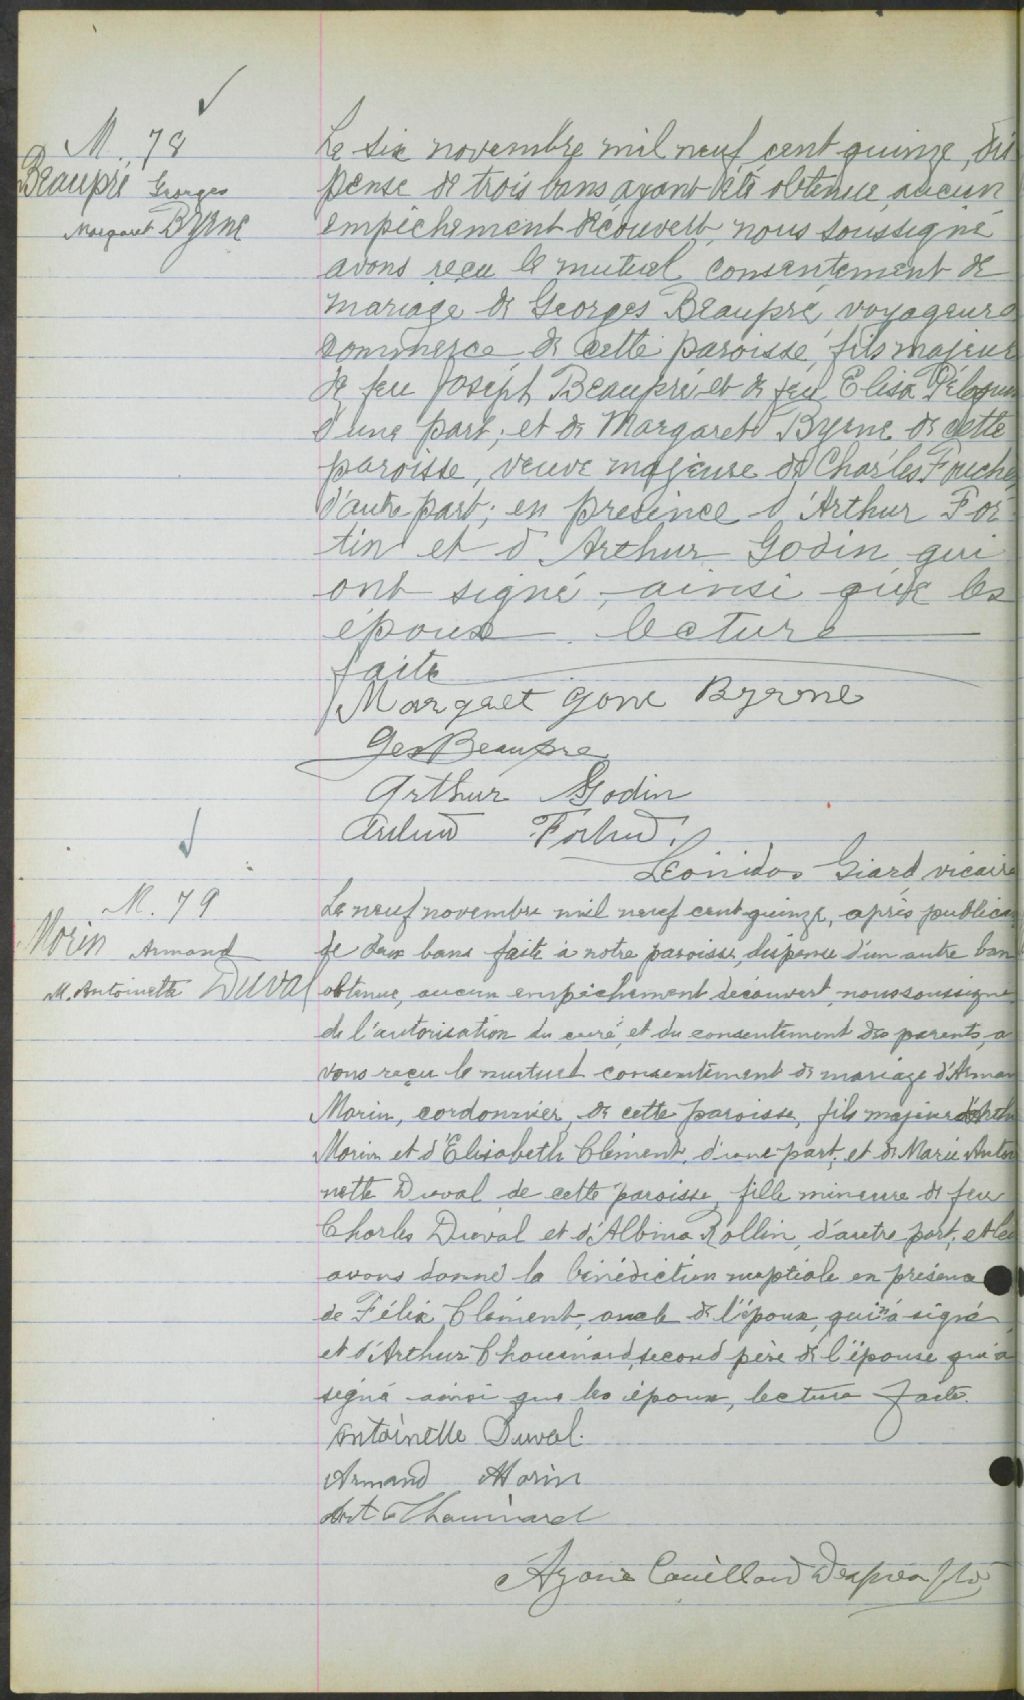 M. 78
Beaupré Georges
Margaret Byrne
Le six novembre mil neuf cent quinze, dis
pense de trois bans ayant été obtenue, aucun
empêchement découvert, nous soussigné
avons reçu le mutuel consentement de
mariage de Georges Beaupré, voyageur de
commerce de cette paroisse, fils majeur
de feu Joseph Beaupré et de feu Elisa
d'une part; et de Margaret Byrne de cette
paroisse, veuve majeure de Charles
d'autre part; en présence d'Arthur For
tin et d'Arthur Godin qui
ont signé, ainsi que les
époux. lecture
faite
Margaet Byrne
Geo Beaupre
Arthur Godin
Leonidas Giard vicaire
M. 79
Morin Armand
M. Antoinette Duval
Le neuf novembre mil neuf cent quinze, après publica
de deux bans faite à notre paroisse, dispense d'un autre ban
obtenue, aucun empêchement découvert, nous soussigné
de l'autorisation du curé, et du consentement des parents, a
vons reçu le mutuel consentement de mariage d'Arman
Morin, cordonnier, de cette paroisse, fils majeur
Morin et d'Elisabeth Clément, d'une part; et de Marie Antoi
nette Duval de cette paroisse, fille mineure de feu
Charles Duval et d'Albina Rollin, d'autre part; et leu
avons donné la bénédiction nuptiale en présence
de Félix Clément, oncle de l'époux, qui n'a signé,
et d'Arthur Chouinard, second père de l'épouse qui a
signé ainsi que les époux, lecture faite.
Antoinette Duval.
Armand Morin
Art Chouinard
Azarie Couillard Després ptre